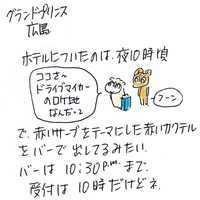 グランドプリンス
広島
ホテルについたのは、夜10時頃
ココさ〜
ドライブマイカー
のロケ地
なんだ〜2
フーン
で、赤いサーブをテーマにした赤いカクテル
をバーで出してるみたい。
バーは10:30p.m.まで。
受付は10時だけどネ.